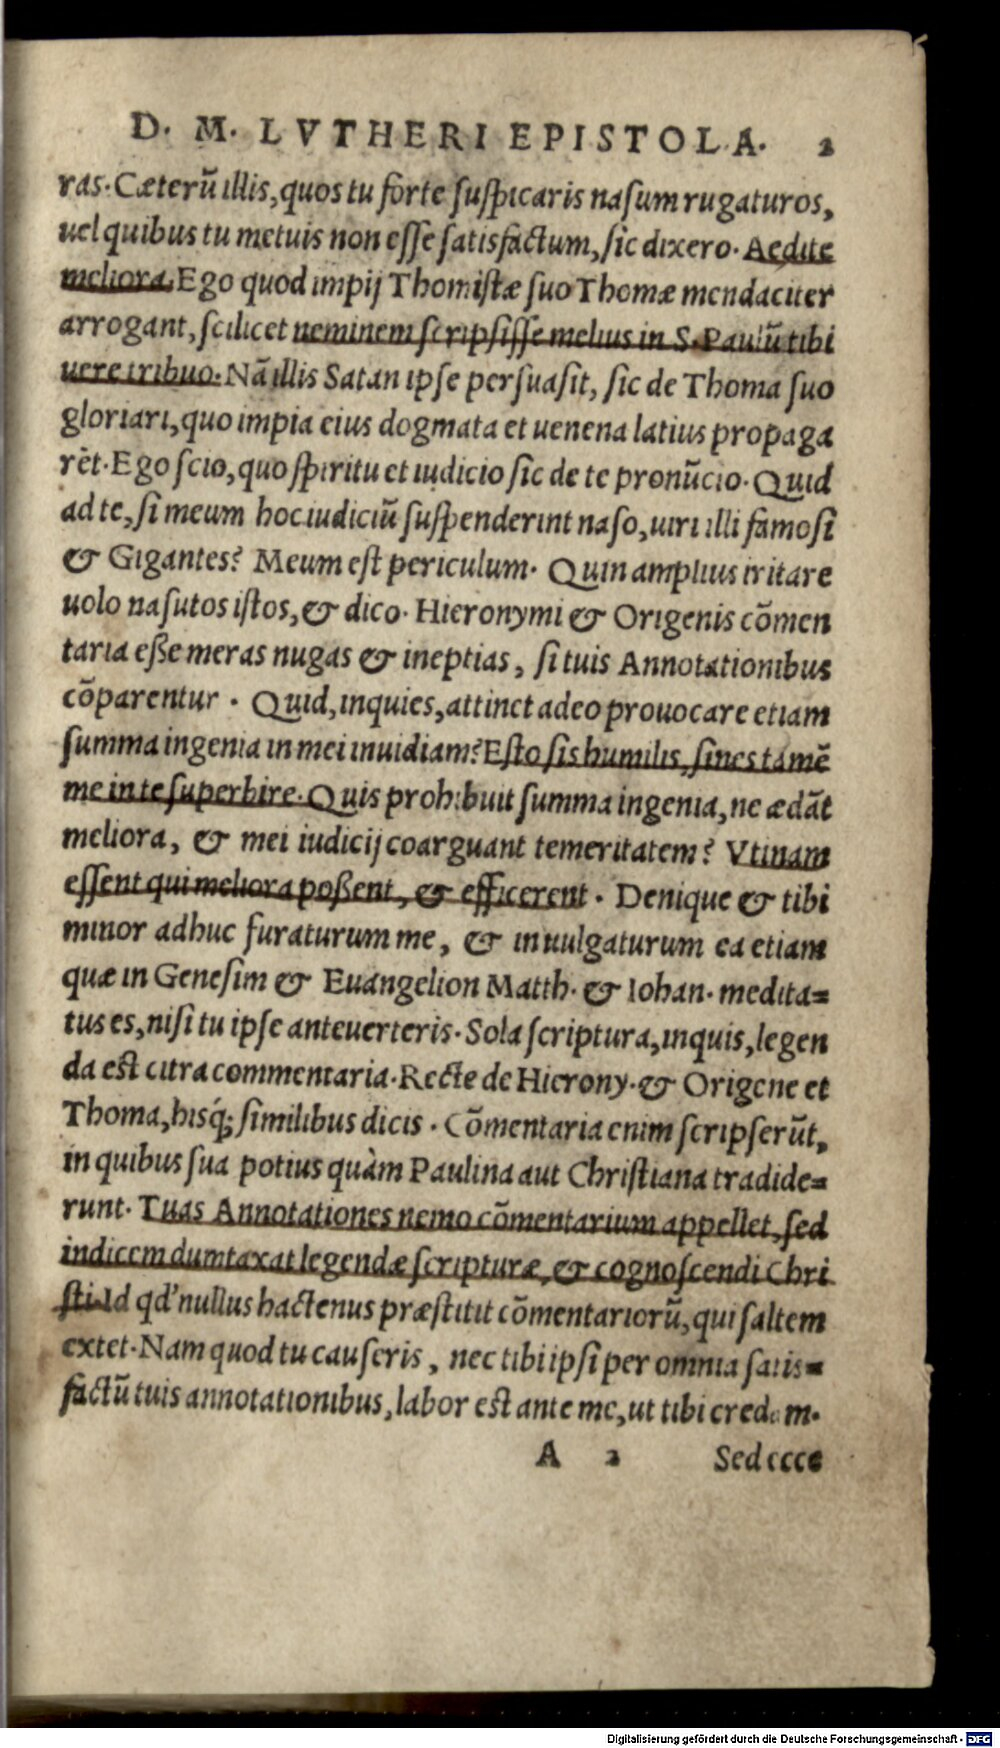 D. M. LVTHERI EPISTOLA. 2
ras. Cæterũ illis, quos tu forte suspicaris nasum rugaturos,
uel quibus tu metuis non esse satisfactum, sic dixero. Aedite
meliora. Ego quod impij Thomistæ suo Thomæ mendaciter
arrogant, scilicet neminem scripsisse melius in S. Paulũ tibi
uere tribuo. Nã illis Satan ipse persuasit, sic de Thoma suo
gloriari, quo impia eius dogmata et uenena latius propaga
rēt. Ego scio, quo spiritu et iudicio sic de te pronũcio. Quid
ad te, si meum hoc iudiciũ suspenderint naso, uiri illi famosi
& Gigantes? Meum est periculum. Quin amplius iritare
uolo nasutos istos, & dico. Hieronymi & Origenis cõmen
taria eße meras nugas & ineptias, si tuis Annotationibus
cõparentur. Quid, inquies, attinet adeo prouocare etiam
summa ingenia in mei inuidiam? Esto sis humilis, sines tamẽ
me in te superbire. Quis prohibuit summa ingenia, ne ædãt
meliora, & mei iudicij coarguant temeritatem? Vtinam
essent qui meliora poßent, & efficerent. Denique & tibi
minor adhuc furaturum me, & inuulgaturum ea etiam
quæ in Genesim & Euangelion Matth. & Iohan. medita=
tus es, nisi tu ipse anteuerteris. Sola scriptura, inquis, legen
da est citra commentaria. Recte de Hierony. & Origene et
Thoma, hisq́; similibus dicis. Cõmentaria enim scripserũt,
in quibus sua potius quàm Paulina aut Christiana tradide=
runt. Tuas Annotationes nemo cõmentarium appellet, sed
indicem dumtaxat legendæ scripturæ, & cognoscendi Chri
sti. Id qd' nullus hactenus præstitit cõmentariorũ, qui saltem
extet. Nam quod tu causeris, nec tibi ipsi per omnia satis=
factũ tuis annotationibus, labor est ante me, ut tibi credam.
A 2 Sed ecce
Digitalisierung gefördert durch die Deutsche Forschungsgemeinschaft - DFG